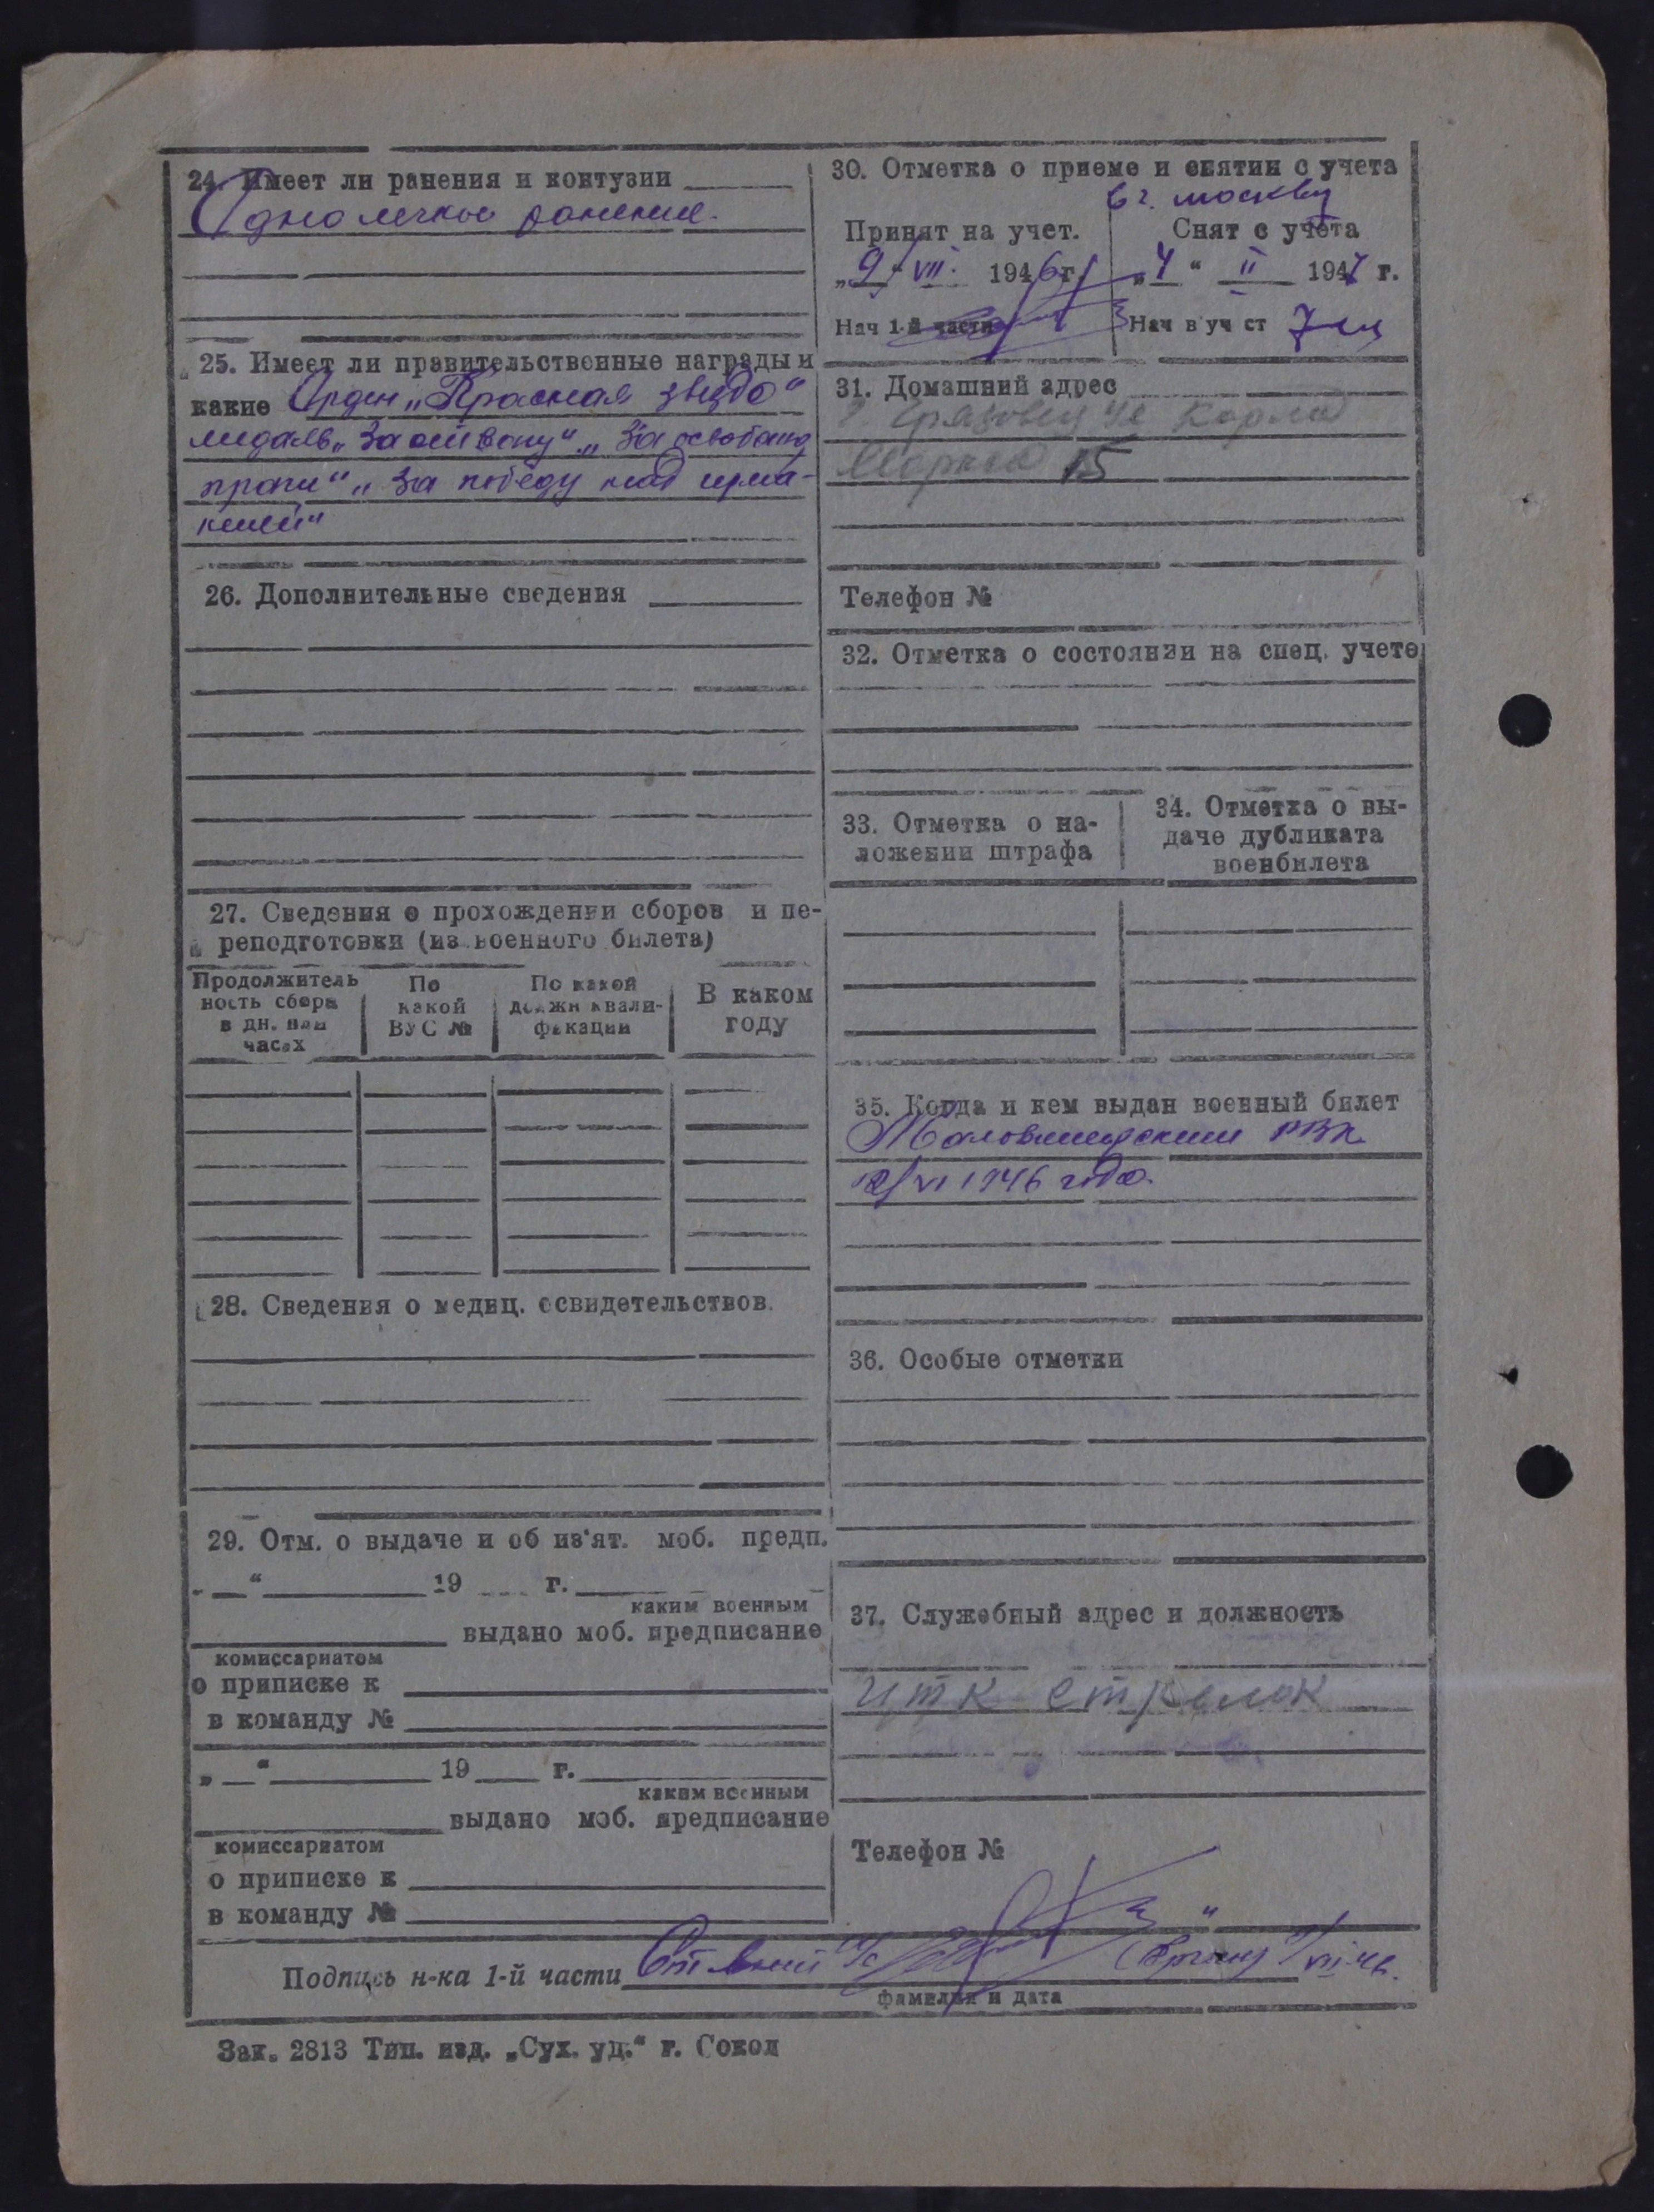 24. Имеет ли ранения и контузии
Одно легкое ранение.
25. Имеет ли правительственные награды и
какие Орден „Красная звезда“
медаль „За отвагу“ „За освобожд
праги“ „За победу над герма-
нией“
26. Дополнительные сведения
27. Сведения о прохождении сборов и пе-
реподготовки (из военного билета)
Продолжитель
ность сбора
в дн. или
часах
По
какой
ВУС №
По какой
должн квали-
фикации
В каком
году
28. Сведения о медиц. освидетельствов.
29. Отм. о выдаче и об из'ят. моб. предп.
„ “ 19 г.
каким военным
выдано моб. предписание
комиссариатом
о приписке к
в команду №
„ “ 19 г.
каким военным
выдано моб. предписание
комиссариатом
о приписке к
в команду №
30. Отметка о приеме и снятии с учета
в г. москву
Принят на учет.
„9“ VII. 1946 г.
Нач 1-й части
Снят с учета
„4“ II 1947 г.
Нач в уч ст
31. Домашний адрес
г. Грязовец ул Карла
Маркса 15
Телефон №
32. Отметка о состоянии на спец. учете
33. Отметка о на-
ложении штрафа
34. Отметка о вы-
даче дубликата
военбилета
35. Когда и кем выдан военный билет
РВК
VI 1946 года.
36. Особые отметки
37. Служебный адрес и должность
стрелок
Телефон №
Подпись н-ка 1-й части
фамилия и дата
Зак. 2813 Тип. изд. „Сух. уд.“ г. Сокол